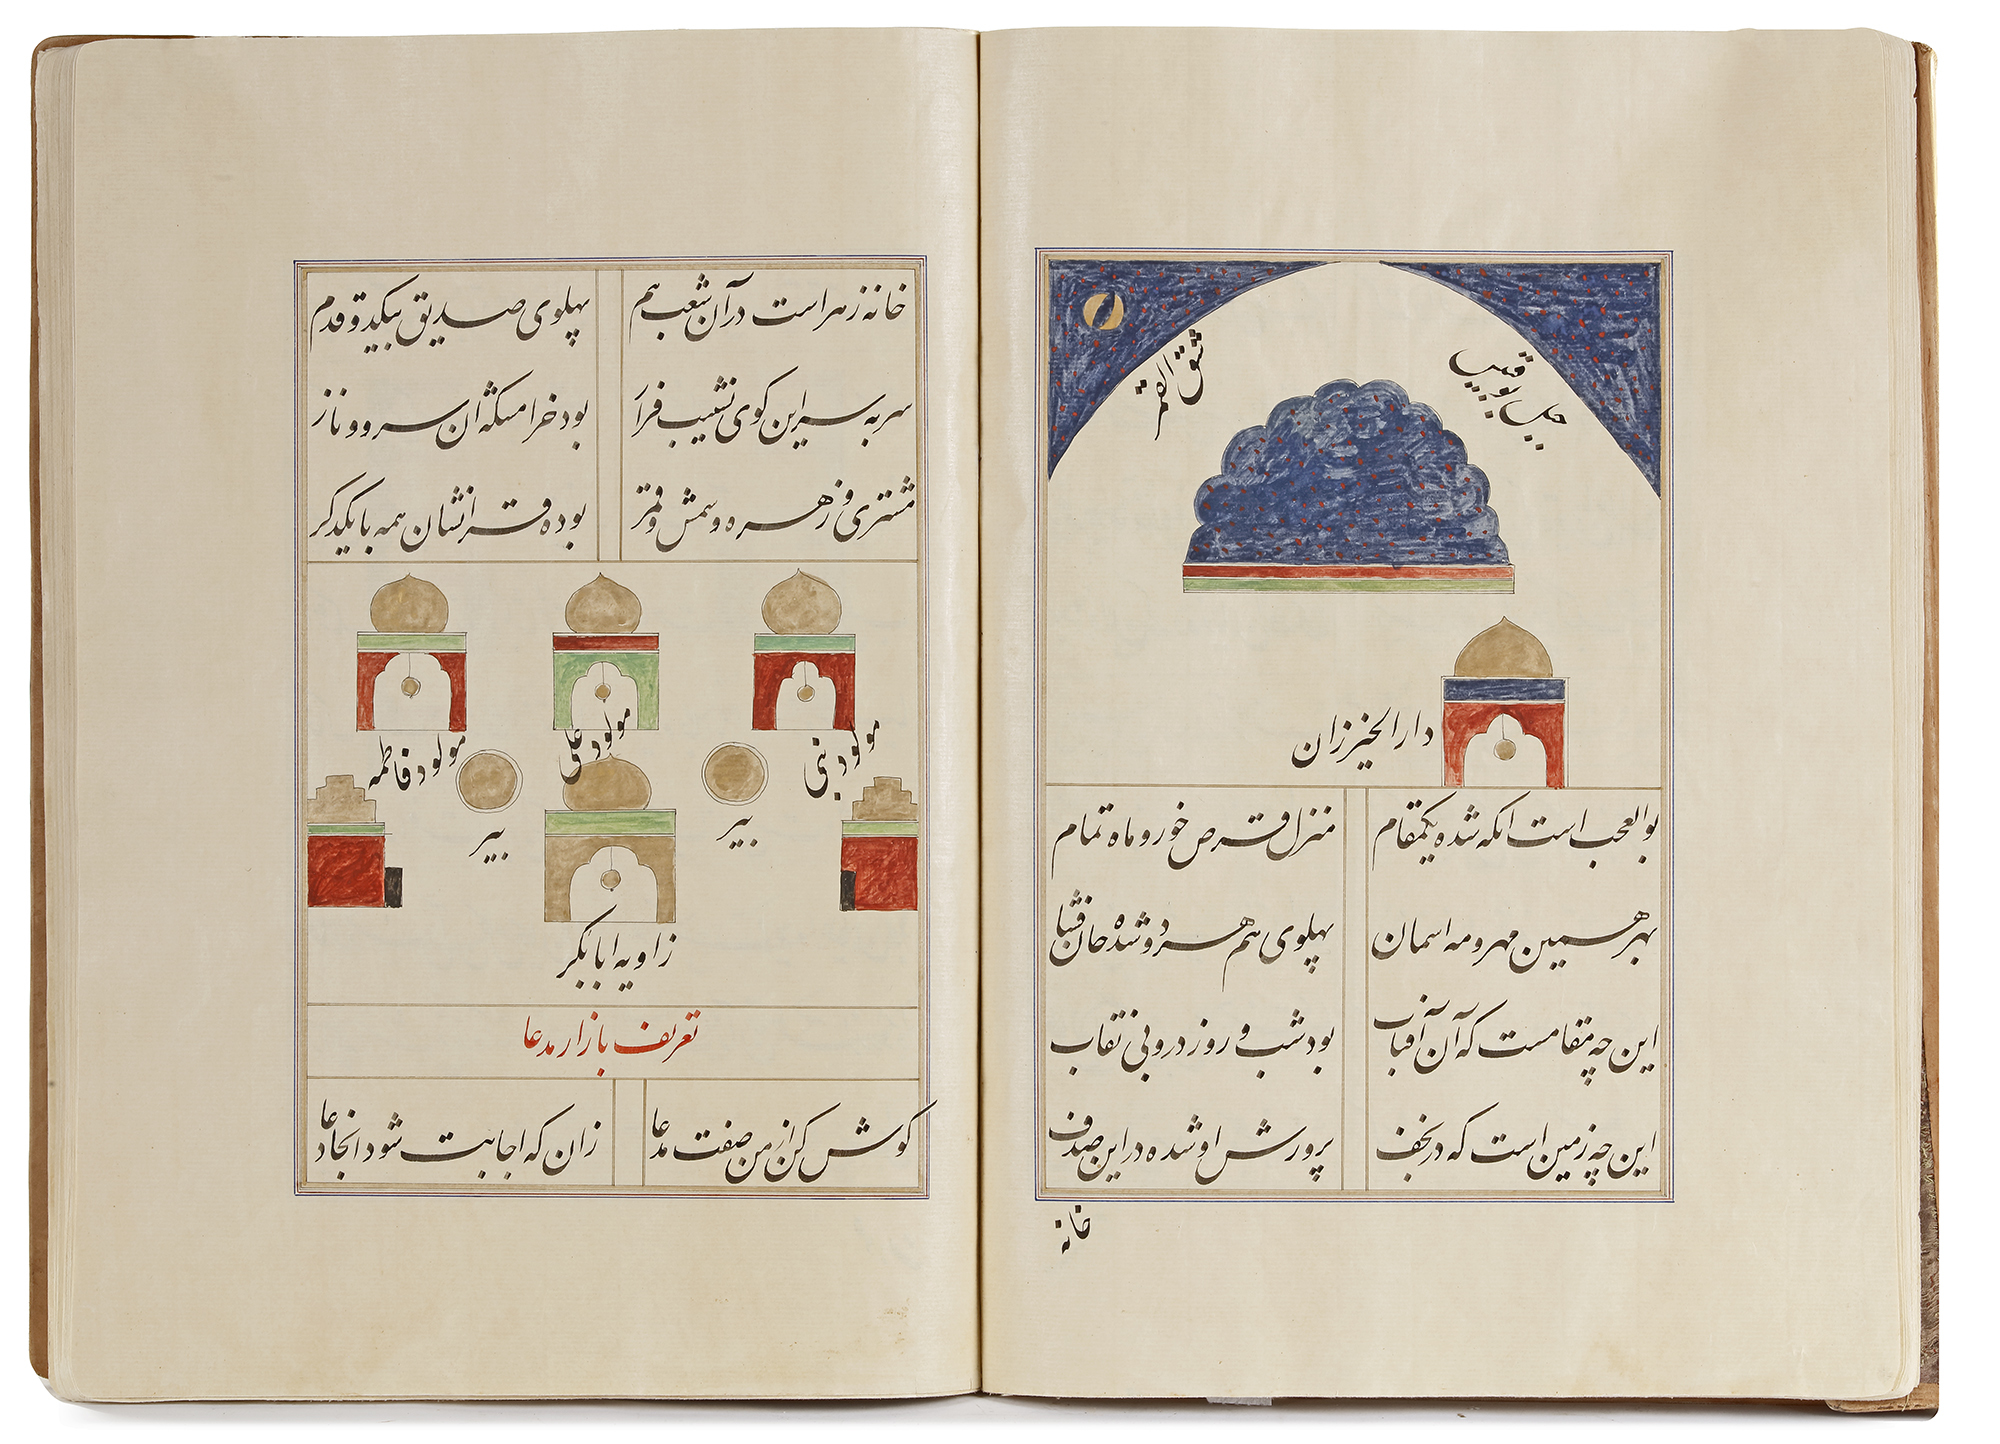 شق القمر
جبل بوقبیس
دار الخیزران
بوالعجب است انکه شده یکمقام منزل قرص خور و ماه تمام
بهر همین مهر و مه اسمان پهلوی هم هر دو شده
این چه مقامست که آن آفتاب بود شب و روز درو بی نقاب
این چه زمین است که در نجف پرورش او شده در این صدف
خانه
خانه زهراست در آن شعب هم پهلوی صدیق بیکدو قدم
سر به سر این کوی نشیب فراز بود خرامنکه آن سرو و ناز
مشتری و زهره و شمس و قمر بوده قرانشان همه با یکدگر
مولود نبی
مولود علی
مولود فاطمه
بیر
بیر
زاویه ابابکر
تعریف بازار مدعا
کوش کن از من صفت مدعا زان که اجابت شود انجا دعا